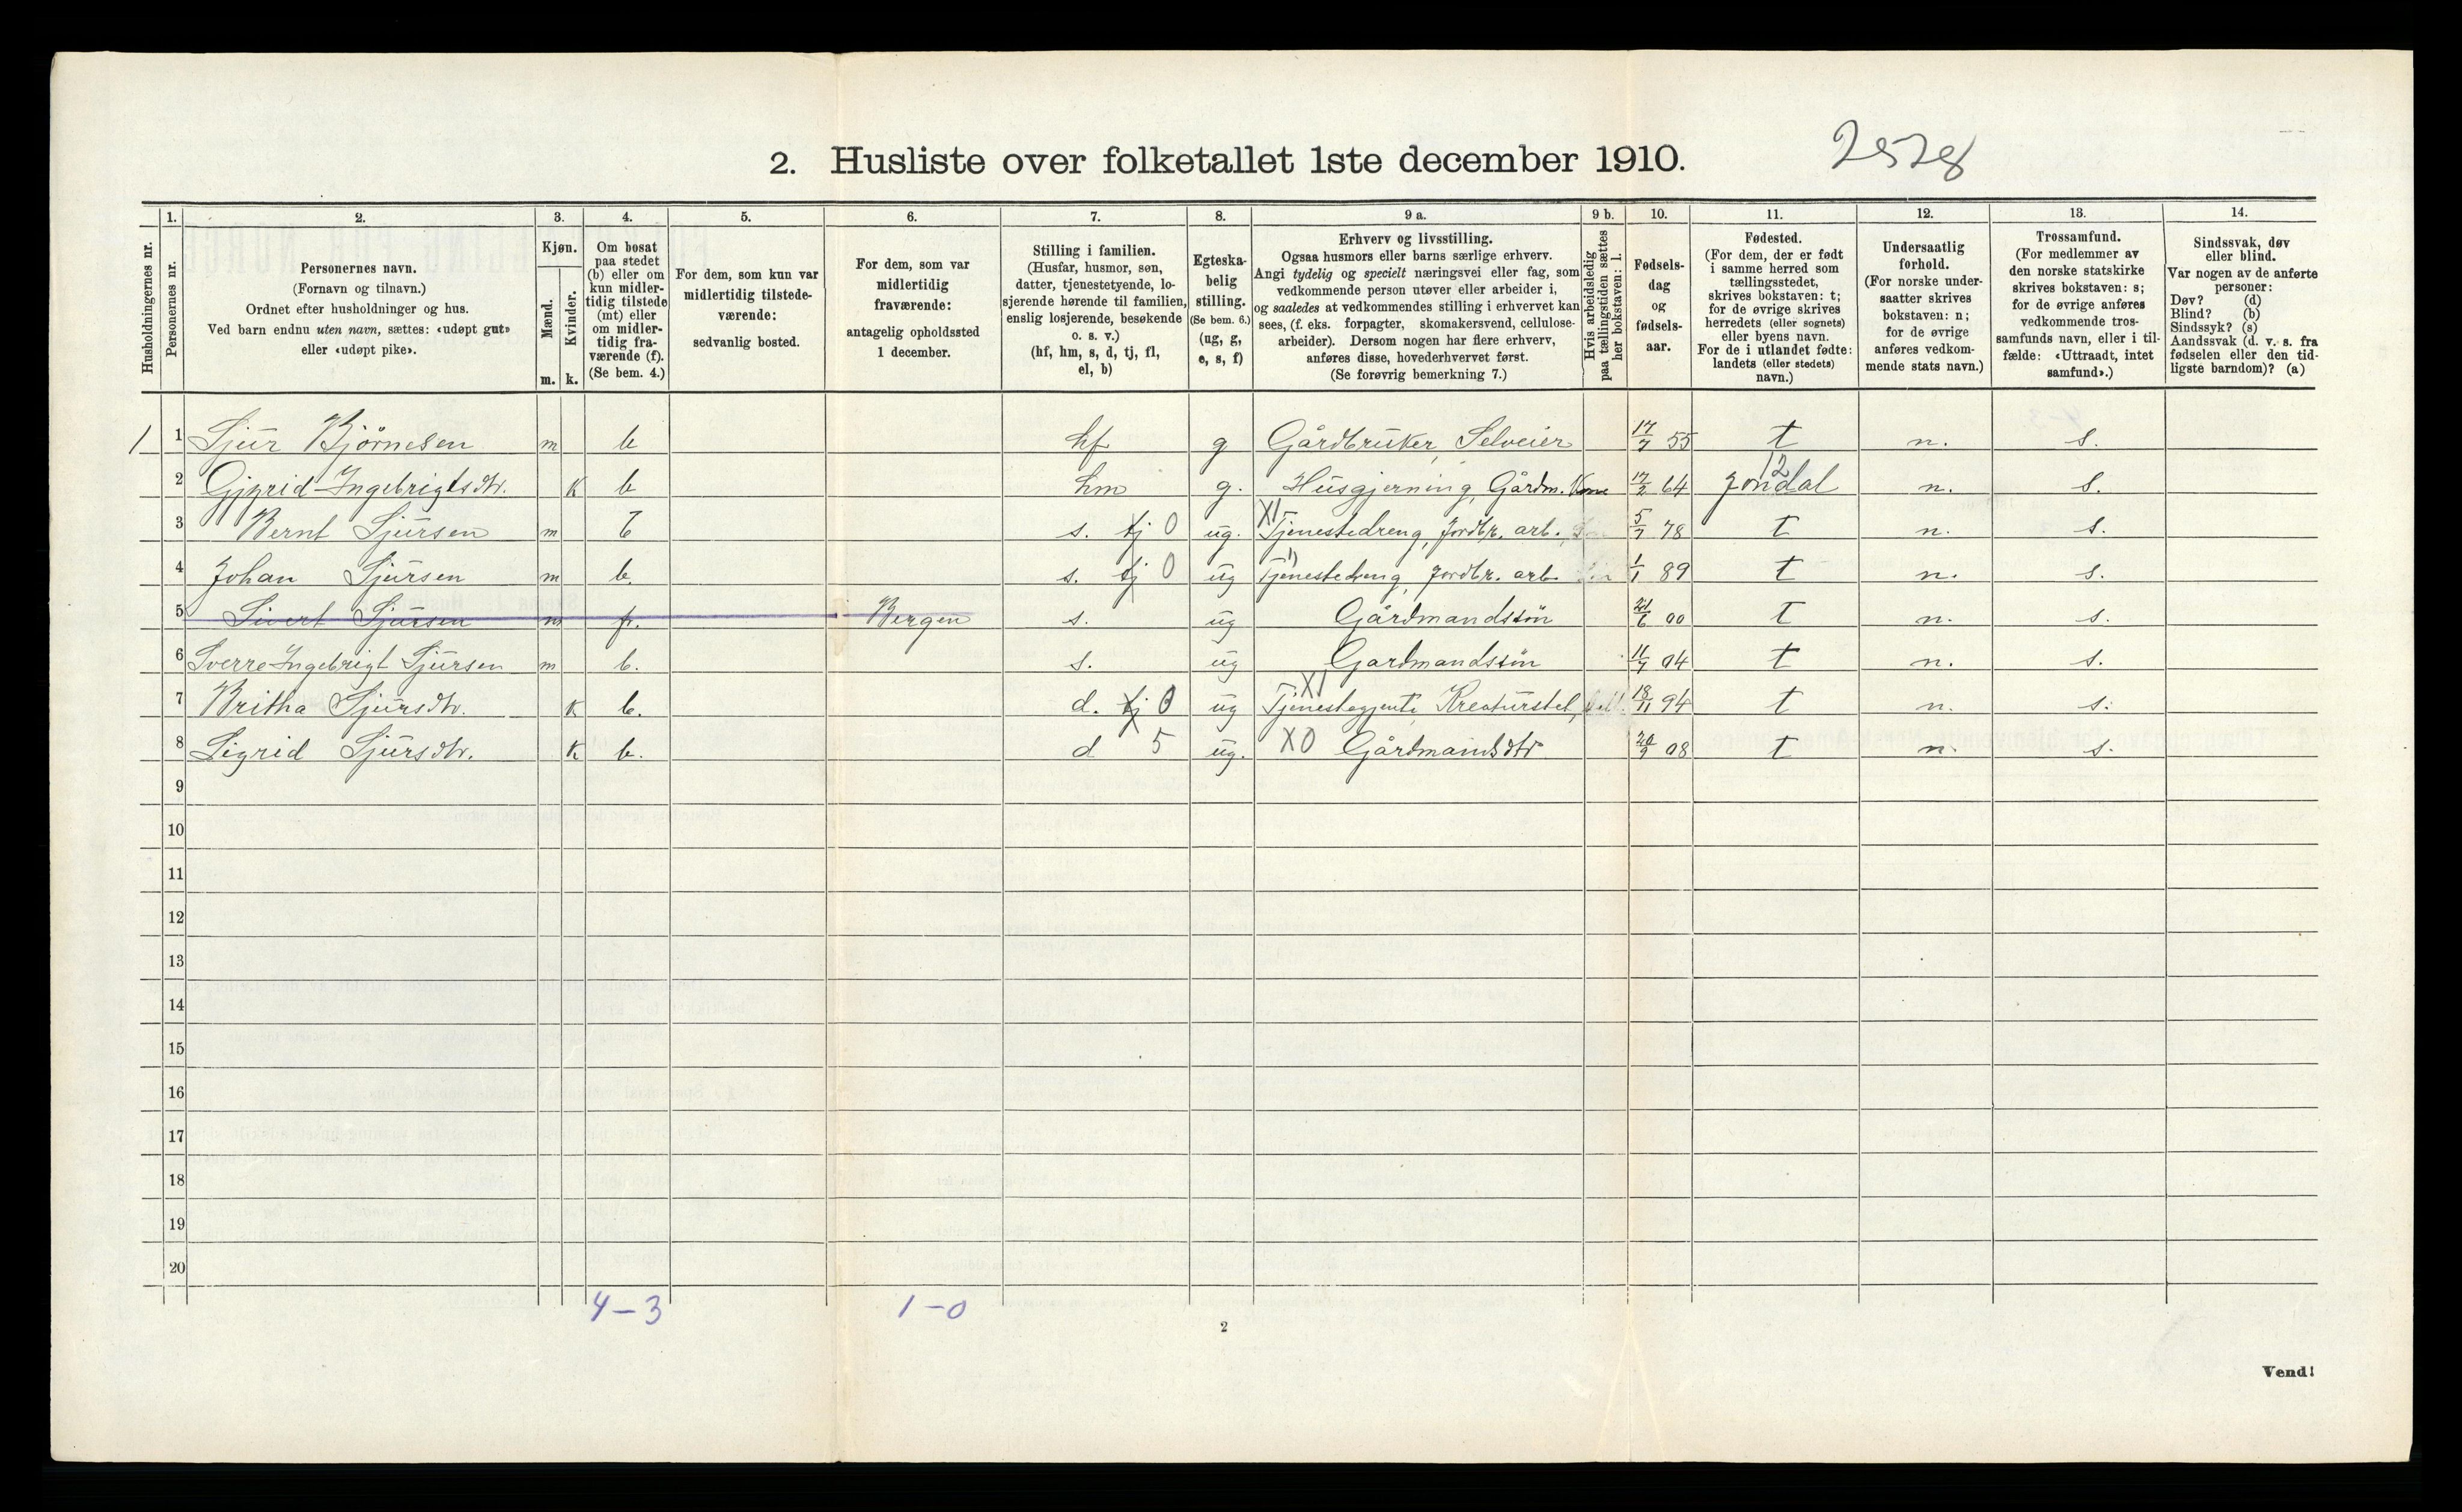 2. Husliste over folketallet 1ste december 1910. 2528
1. 2. 3. 4. 5. 6. 7. 8. 9 a. 9 b. 10. 11. 12. 13. 14.
Husholdningernes nr.
Personernes nr.
Personernes navn.
(Fornavn og tilnavn.)
Ordnet efter husholdninger og hus.
Ved barn endnu uten navn, sættes: «udøpt gut»
eller «udøpt pike».
Kjøn.
Mænd.
Kvinder.
m. k.
Om bosat
paa stedet
(b) eller om
kun midler-
tidig tilstede
(mt) eller
om midler-
tidig fra-
værende (f).
(Se bem. 4.)
For dem, som kun var
midlertidig tilstede-
værende:
sedvanlig bosted.
For dem, som var
midlertidig
fraværende:
antagelig opholdssted
1 december.
Stilling i familien.
(Husfar, husmor, søn,
datter, tjenestetyende, lo-
sjerende hørende til familien,
enslig losjerende, besøkende
o. s. v.)
(hf, hm, s, d, tj, fl,
el, b)
Egteska-
belig
stilling.
(Se bem. 6.)
(ug, g,
e, s, f)
Erhverv og livsstilling.
Ogsaa husmors eller barns særlige erhverv.
Angi tydelig og specielt næringsvei eller fag, som
vedkommende person utøver eller arbeider i,
og saaledes at vedkommendes stilling i erhvervet kan
sees, (f. eks. forpagter, skomakersvend, cellulose-
arbeider). Dersom nogen har flere erhverv,
anføres disse, hovederhvervet først.
(Se forøvrig bemerkning 7.)
Hvis arbeidsledig
paa tællingstiden sættes
her bokstaven: l.
Fødsels-
dag
og
fødsels-
aar.
Fødested.
(For dem, der er født
i samme herred som
tællingsstedet,
skrives bokstaven: t;
for de øvrige skrives
herredets (eller sognets)
eller byens navn.
For de i utlandet fødte:
landets (eller stedets)
navn.)
Undersaatlig
forhold.
(For norske under-
saatter skrives
bokstaven: n;
for de øvrige
anføres vedkom-
mende stats navn.)
Trossamfund.
(For medlemmer av
den norske statskirke
skrives bokstaven: s;
for de øvrige anføres
vedkommende tros-
samfunds navn, eller i til-
fælde: «Uttraadt, intet
samfund».)
Sindssvak, døv
eller blind.
Var nogen av de anførte
personer:
Døv? (d)
Blind? (b)
Sindssyk? (s)
Aandssvak (d. v. s. fra
fødselen eller den tid-
ligste barndom)? (a)
1 1 Sjur Bjørnesen m b hf g Gårdbruker, Selveier 17/7 55 t n. s.
2 Gjyrid Ingebrigtsdtr. K b hm g. Husgjerning, Gårdm. Kone 17/2 64 Jondal 12 n. s.
3 Bernt Sjursen m b s. tj 0 ug. X1 Tjenestedreng, Jordbr. arb. 5/7 78 t n. s.
4 Johan Sjursen m b. s. tj 0 ug Tjenestedreng, Jordbr. arb. 1/1 89 t n. s.
5 Sivert Sjursen m f. Bergen s. ug Gårdmandssøn 21/6 00 t n. s.
6 Sverre Ingebrigt Sjursen m b. s. ug Gardmandssøn 11/7 04 t n. s.
7 Britha Sjursdtr. K b. d. tj 0 ug X1 Tjenestegjente Kreaturstel, 18/11 94 t n. s.
8 Sigrid Sjursdtr. K b. d 5 ug. X0 Gårdmandsdtr 20/9 08 t n. s.
9
10
11
12
13
14
15
16
17
18
19
20
4-3 1-0
2
Vend!